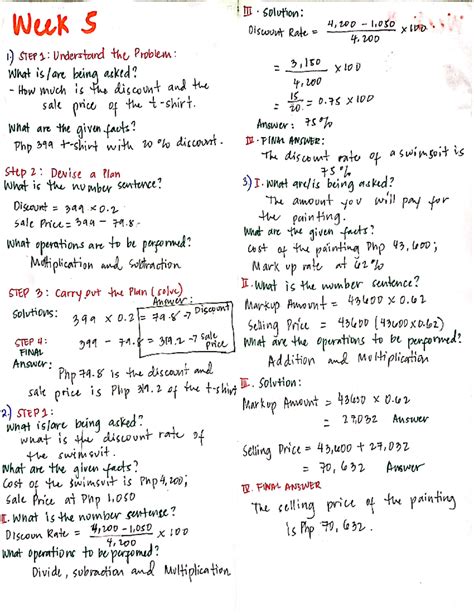 Week 5
1.) STEP 1: Understand the Problem:
What is/are being asked?
- How much is the discount and the
sale price of the t-shirt.
What are the given facts?
Php 399 t-shirt with 20% discount.
Step 2: Devise a Plan
What is the number sentence?
Discount = 399 x 0.2
Sale Price = 399 - 79.8
What operations are to be performed?
Multiplication and Subtraction
STEP 3: Carry out the Plan (solve)
Answer:
Solutions: 399 x 0.2 = 79.8 → Discount
STEP 4: 399 - 79.8 = 319.2 → sale price
FINAL
Answer: Php 79.8 is the discount and
sale price is Php 319.2 of the t-shirt
2.) STEP 1:
What is/are being asked?
what is the discount rate of
the swimsuit.
What are the given facts?
Cost of the swimsuit is Php 4,200;
sale Price at Php 1,050
II. What is the number sentence?
Discoun Rate = 4,200 - 1,050 / 4,200 x 100
What operations to be performed?
Divide, subraction and Multiplication
III. Solution:
Discount Rate = 4,200 - 1,050 / 4,200 x 100
= 3,150 / 4,200 x 100
= 15 / 20 = 0.75 x 100
Answer: 75%
IV. FINAL ANSWER:
The discount rate of a swimsuit is
75%
3) I. What are/is being asked?
The amount you will pay for
the painting.
What are the given facts?
Cost of the painting Php 43,600;
Mark up rate at 62%
II. What is the number sentence?
Markup Amount = 43600 x 0.62
Selling Price = 43600 (43600x0.62)
What are the operations to be performed?
Addition and Multiplication
III. Solution:
Markup Amount = 43600 x 0.62
= 27,032 Answer
Selling Price = 43,600 + 27,032
= 70,632 Answer
IV. FINAL ANSWER
The selling price of the painting
is Php 70,632.